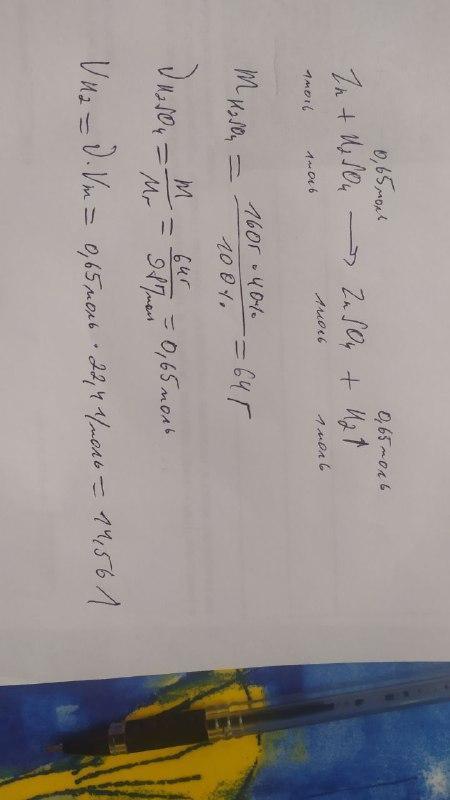 0,65 моль 0,65 моль
Zn + H₂SO₄ ⟶ ZnSO₄ + H₂↑
1моль 1моль 1моль 1моль
m H₂SO₄ = 160г · 40% / 100% = 64 г
ν H₂SO₄ = m / Mr = 64г / 98г/моль = 0,65 моль
V H₂ = ν · Vm = 0,65 моль · 22,4 л/моль = 14,56 л